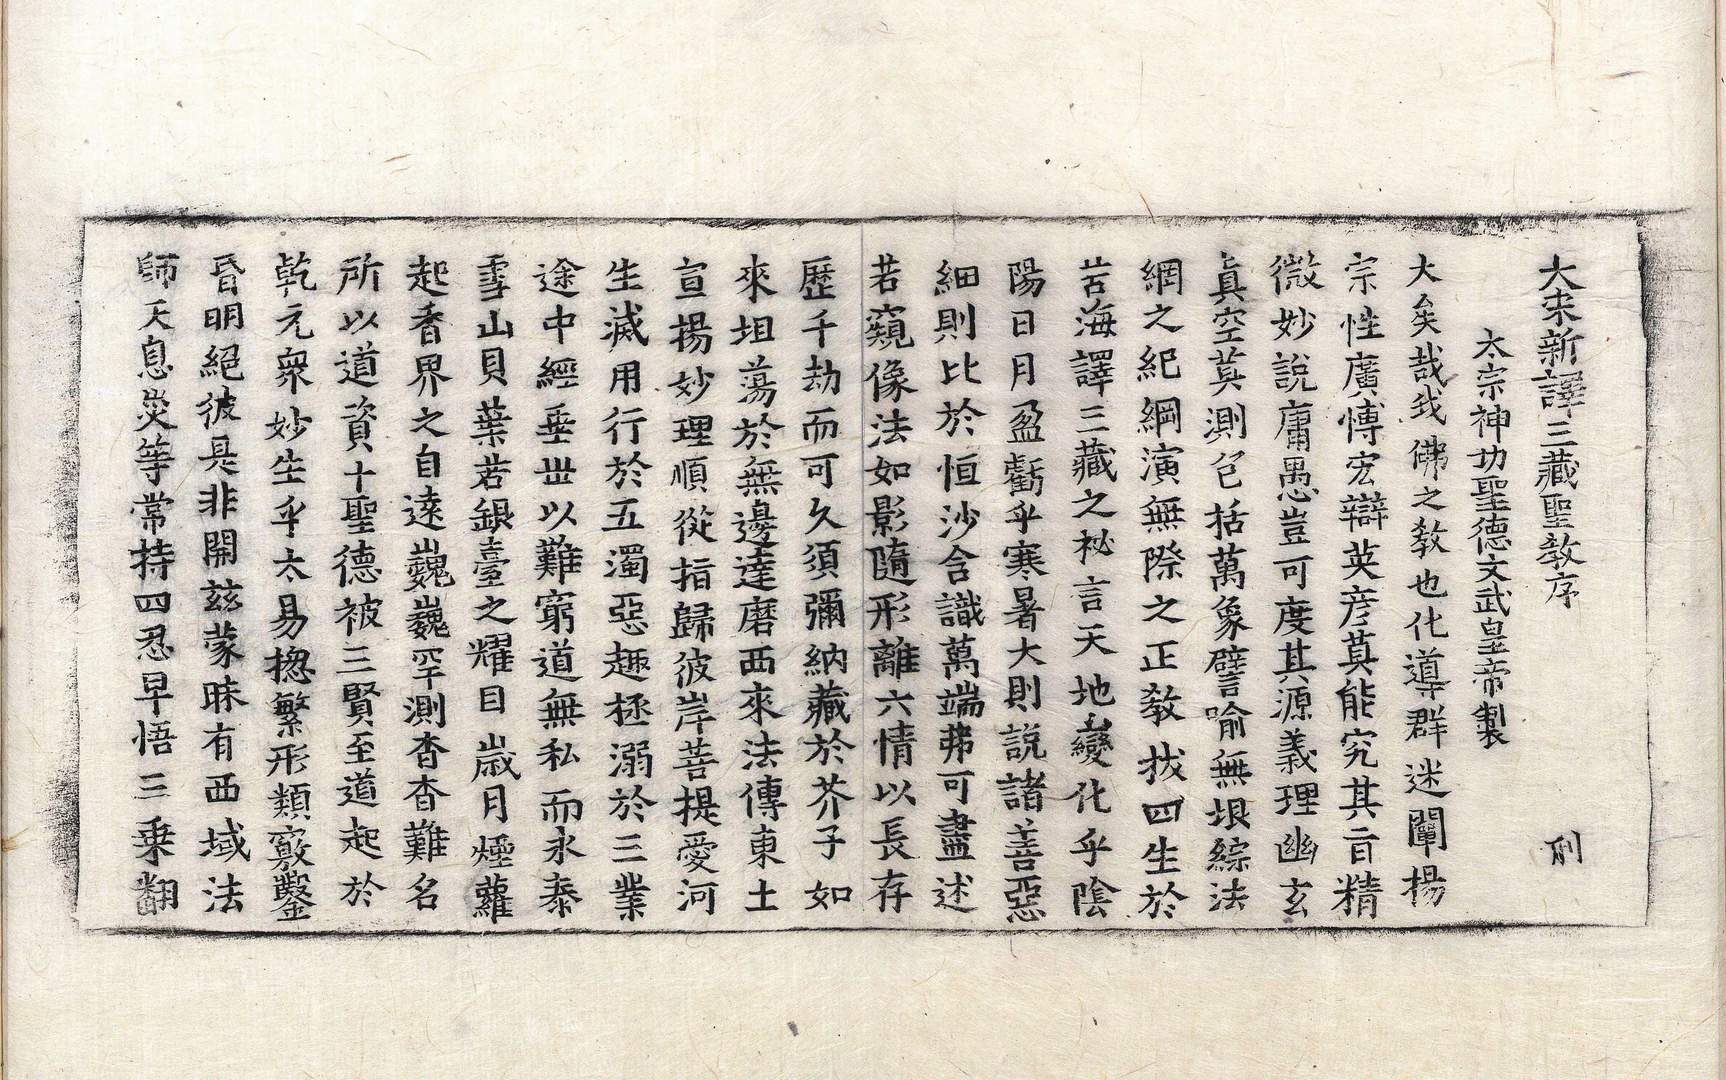 大宋新譯三藏聖教序 刑
太宗神功聖德文武皇帝製
大矣哉我佛之教也化導群迷闡揚
宗性廣愽宏辯英彦莫能究其旨精
微妙說庸愚豈可度其源義理幽玄
眞空莫測包括萬象譬喻無垠綜法
網之紀綱演無際之正教拔四生於
苦海譯三藏之祕言天地變化乎陰
陽日月盈虧乎寒暑大則說諸善惡
細則比於恒沙含識萬端弗可盡述
若窺像法如影隨形離六情以長存
歷千劫而可久須彌納藏於芥子如
來坦蕩於無邊達磨西來法傳東土
宣揚妙理順從指歸彼岸菩提愛河
生滅用行於五濁惡趣拯溺於三業
途中經垂世以難窮道無私而永泰
雪山貝葉若銀臺之耀目歲月煙蘿
起香界之自遠巍巍罕測杳杳難名
所以道資十聖德被三賢至道起於
乾元衆妙生乎太易揔繁形類竅鑿
昏明絕彼是非開兹蒙昧有西域法
師天息災等常持四忍早悟三乗翻